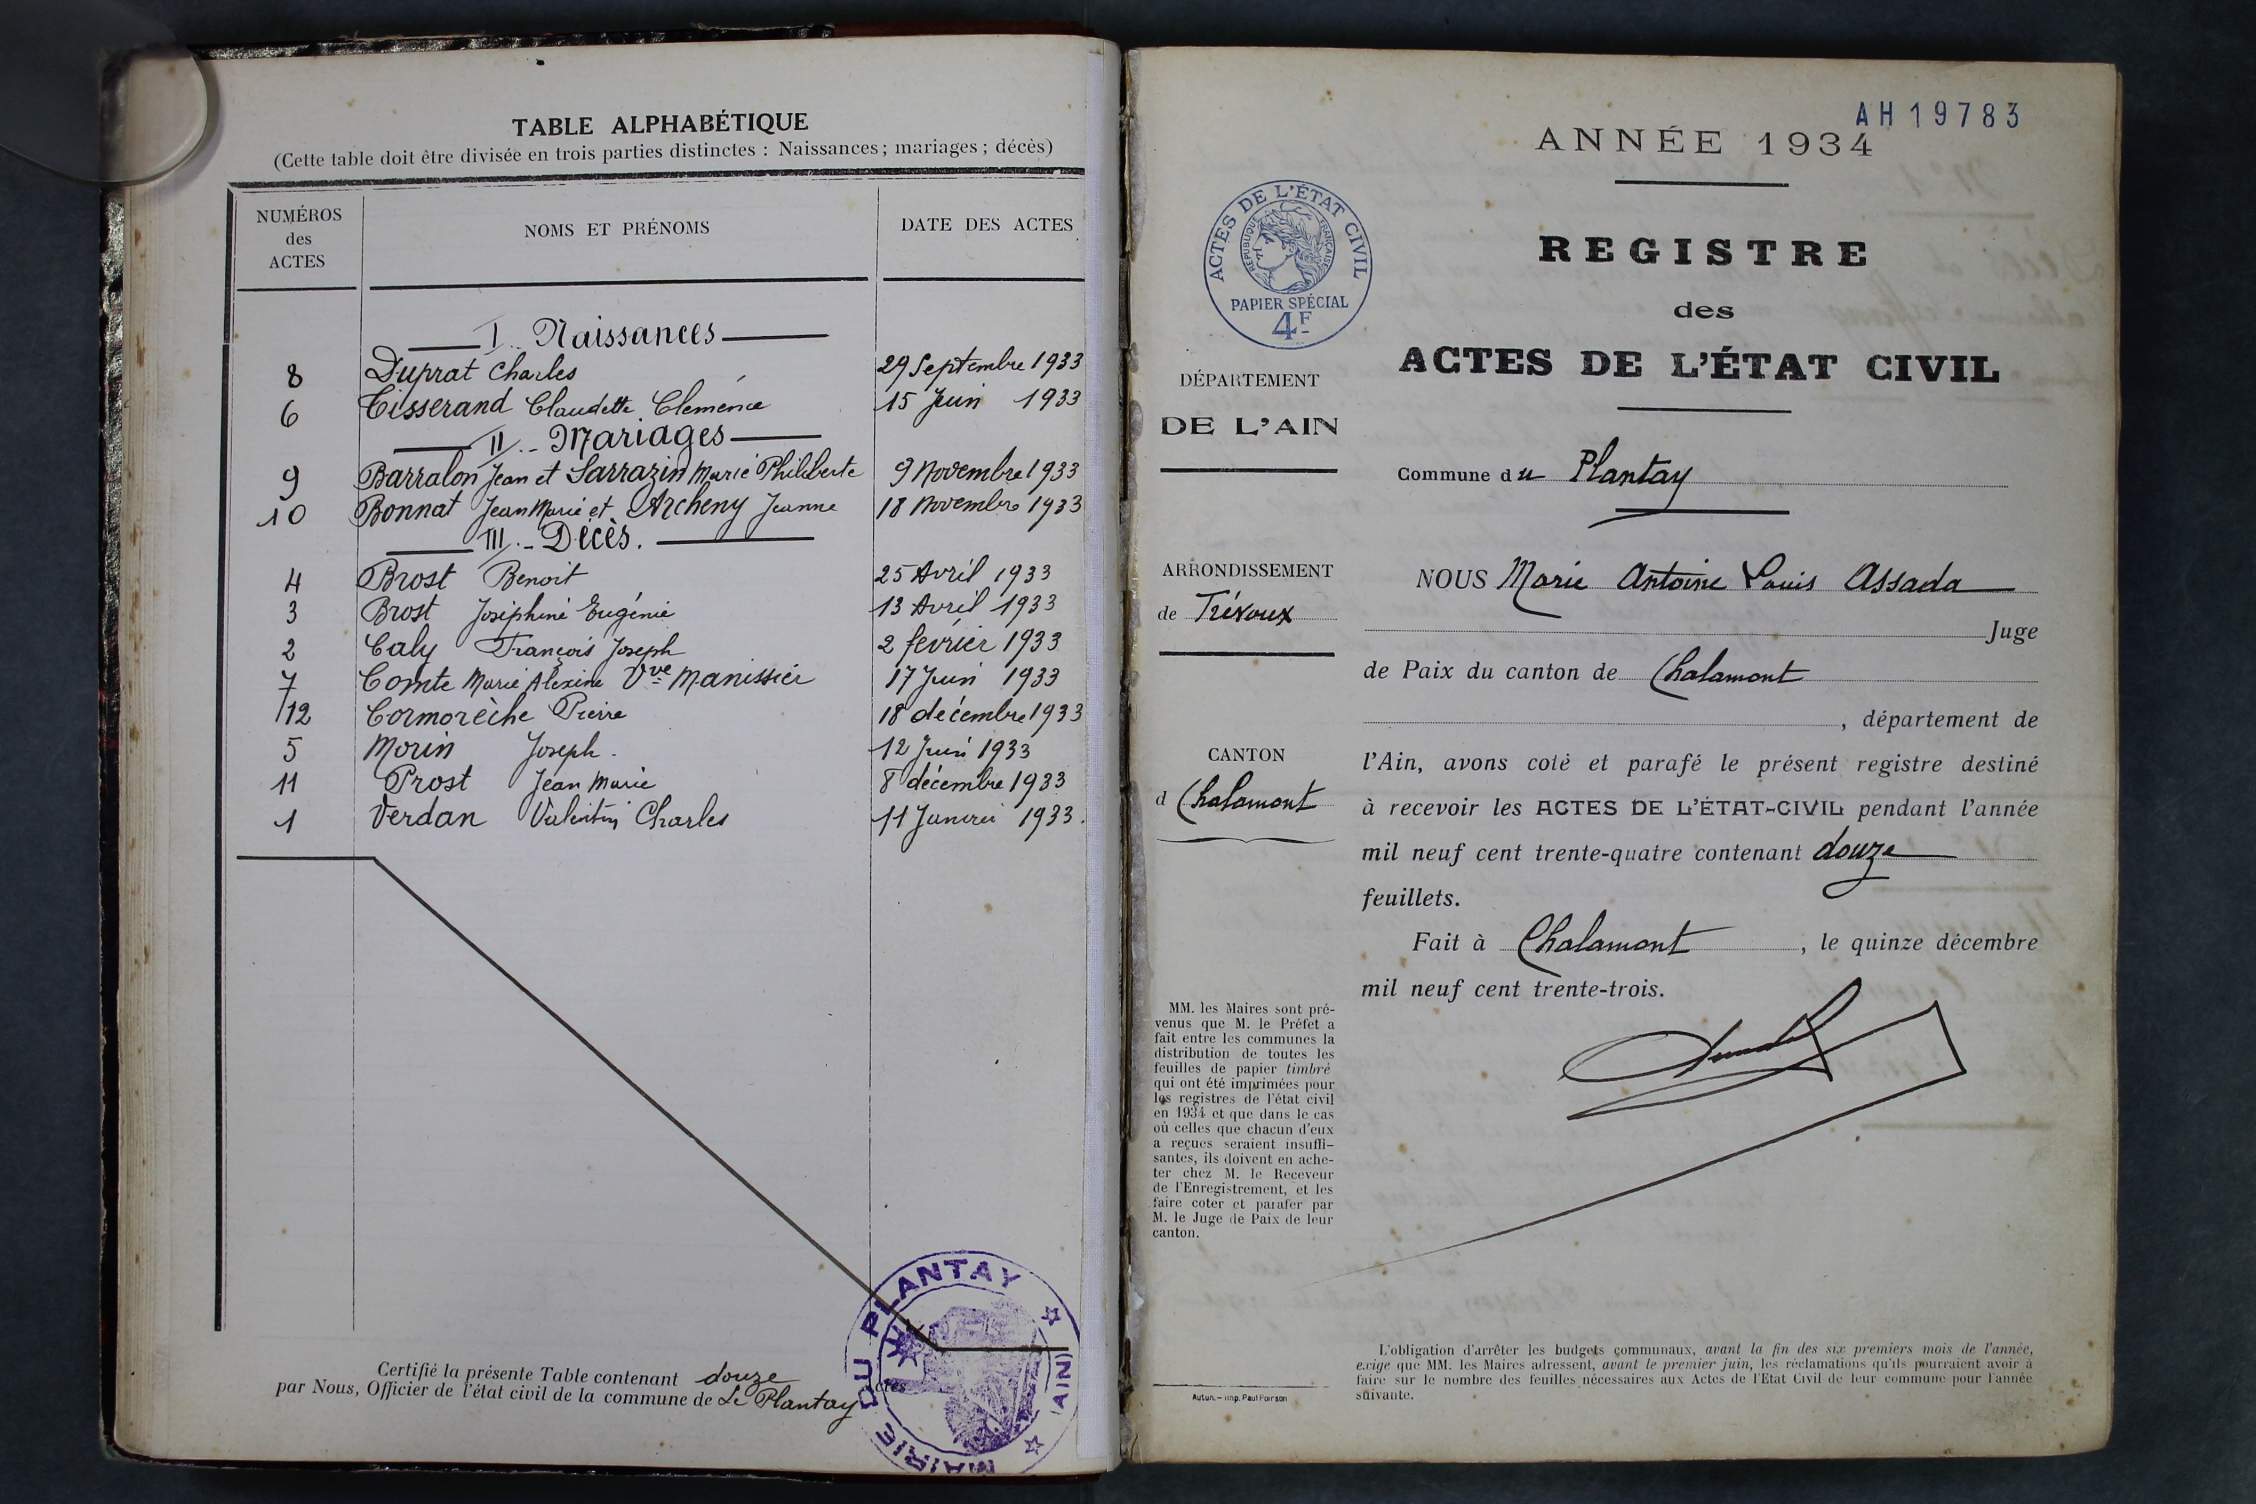 TABLE ALPHABÉTIQUE
(Cette table doit être divisée en trois parties distinctes : Naissances ; mariages ; décès)
NUMÉROS
des
ACTES
NOMS ET PRÉNOMS
DATE DES ACTES
I. - Naissances
8 Duprat Charles 29 Septembre 1933
6 Tisserand Claudette Clémence 15 Juin 1933
II. - Mariages
9 Barralon Jean et Sarrazin Marie Philiberte 9 Novembre 1933
10 Bonnat Jean Marie et Archeny Jeanne 18 Novembre 1933
III. - Décès.
4 Brost Benoit 25 Avril 1933
3 Brost Joséphine Eugénie 13 Avril 1933
2 Caly François Joseph 2 février 1933
7 Comte Marie Alexine Vve Manissier 17 Juin 1933
12 Cormorèche Pierre 18 décembre 1933
5 Morin Joseph. 12 Juin 1933
11 Prost Jean Marie 8 décembre 1933
1 Verdan Valentin Charles 11 Janvier 1933.
Certifié la présente Table contenant douze actes
par Nous, Officier de l'état civil de la commune de Le Plantay
MAIRIE DU PLANTAY
(AIN)
AH 19783
ANNÉE 1934
REGISTRE
des
ACTES DE L'ÉTAT CIVIL
ACTES DE L'ÉTAT CIVIL
RÉPUBLIQUE FRANÇAISE
PAPIER SPÉCIAL
4F
DÉPARTEMENT
DE L'AIN
Commune du Plantay
ARRONDISSEMENT
de Trévoux
CANTON
d Chalamont
NOUS Marie Antoine Louis Assada
Juge
de Paix du canton de Chalamont
, département de
l'Ain, avons coté et parafé le présent registre destiné
à recevoir les ACTES DE L'ÉTAT-CIVIL pendant l'année
mil neuf cent trente-quatre contenant douze
feuillets.
Fait à Chalamont, le quinze décembre
mil neuf cent trente-trois.
MM. les Maires sont pré-
venus que M. le Préfet a
fait entre les communes la
distribution de toutes les
feuilles de papier timbré
qui ont été imprimées pour
les registres de l'état civil
en 1934 et que dans le cas
où celles que chacun d'eux
a reçues seraient insuffi-
santes, ils doivent en ache-
ter chez M. le Receveur
de l'Enregistrement, et les
faire coter et parafer par
M. le Juge de Paix de leur
canton.
Autun. - Imp. Paul Poirson
L'obligation d'arrêter les budgets communaux, avant la fin des six premiers mois de l'année,
exige que MM. les Maires adressent, avant le premier juin, les réclamations qu'ils pourraient avoir à
faire sur le nombre des feuilles nécessaires aux Actes de l'Etat Civil de leur commune pour l'année
suivante.